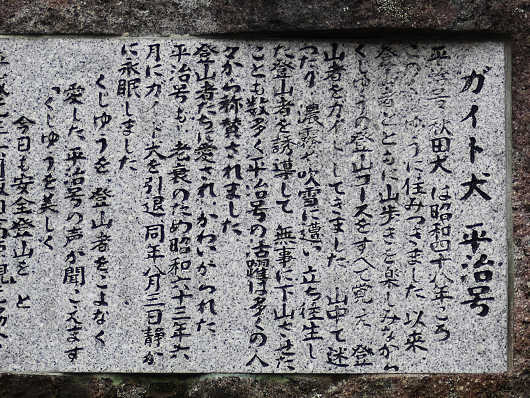 ガイド犬 平治号
平治号(秋田犬)は昭和四十八年ごろ
このくじゅうに住みつきました 以来
登山者とともに山歩きを楽しみながら
くじゅうの登山コースをすべて覚え 登
山者をガイドしてきました 山中で迷
ったり 濃霧や吹雪に遭い立ち往生し
た登山者を誘導して 無事に下山させた
ことも数多く平治号の活躍は多くの人
々から称賛されました
登山者たちに愛され かわいがられた
平治号も 老衰のため昭和六十三年六
月にガイド犬を引退 同年八月三日静か
に永眠しました
くじゆうを 登山者をこよなく
愛した 平治号の声が聞こえます
「くじゆうを美しく
今日も安全登山を」と